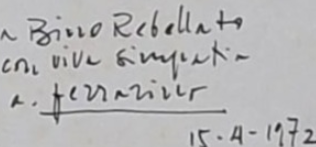 a Bino Rebellato
con viva simpatia
a. ferrariver
15-4-1972